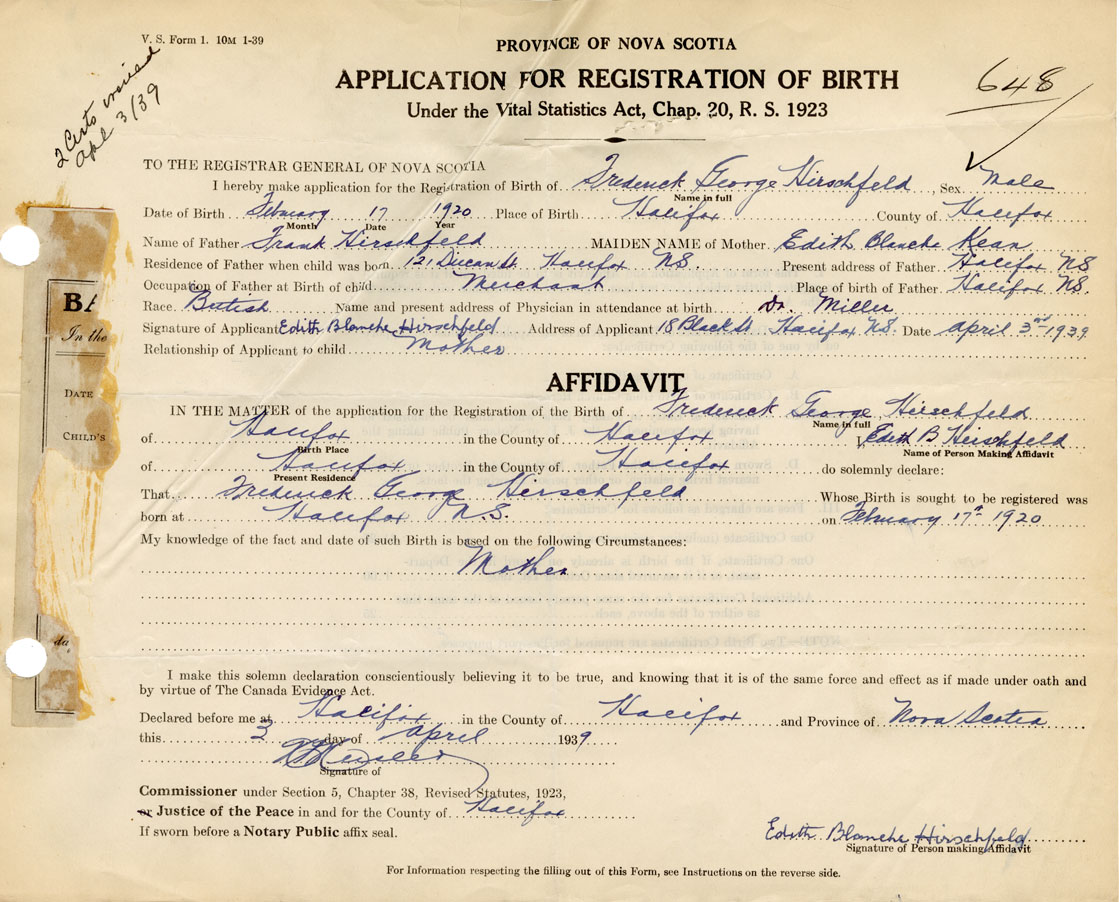 V. S. Form 1. 10M 1-39
PROVINCE OF NOVA SCOTIA
APPLICATION FOR REGISTRATION OF BIRTH
Under the Vital Statistics Act, Chap. 20, R. S. 1923
648
2 Certs
Apl 3/39
TO THE REGISTRAR GENERAL OF NOVA SCOTIA
I hereby make application for the Registration of Birth of Frederick George Hirschfeld, Sex Male
Name in full
Date of Birth February 17 1920 Place of Birth Halifax County of Halifax
Month Date Year
Name of Father Frank Hirschfeld MAIDEN NAME of Mother Edith Blanche Kean
Residence of Father when child was born 121 St Halifax NS. Present address of Father Halifax NS
Occupation of Father at Birth of child Merchant Place of birth of Father Halifax NS.
Race British Name and present address of Physician in attendance at birth Dr. Miller
Signature of Applicant Edith Blanche Hirschfeld Address of Applicant 18 Black St Halifax NS. Date April 3rd 1939
Relationship of Applicant to child Mother
BA
In the
DATE
CHILD'S
da
AFFIDAVIT
IN THE MATTER of the application for the Registration of the Birth of Frederick George Hirschfeld
Name in full
of Halifax in the County of Halifax I, Edith B Hirschfeld
Birth Place Name of Person Making Affidavit
of Halifax in the County of Halifax do solemnly declare:
Present Residence
That Frederick George Hirschfeld Whose Birth is sought to be registered was
born at Halifax N.S. on February 17th 1920
My knowledge of the fact and date of such Birth is based on the following Circumstances:
Mother
I make this solemn declaration conscientiously believing it to be true, and knowing that it is of the same force and effect as if made under oath and
by virtue of The Canada Evidence Act.
Declared before me at Halifax in the County of Halifax and Province of Nova Scotia
this 3 day of April 1939
Signature of
Commissioner under Section 5, Chapter 38, Revised Statutes, 1923,
or Justice of the Peace in and for the County of Halifax
If sworn before a Notary Public affix seal.
Edith Blanche Hirschfeld
Signature of Person making Affidavit
For Information respecting the filling out of this Form, see Instructions on the reverse side.